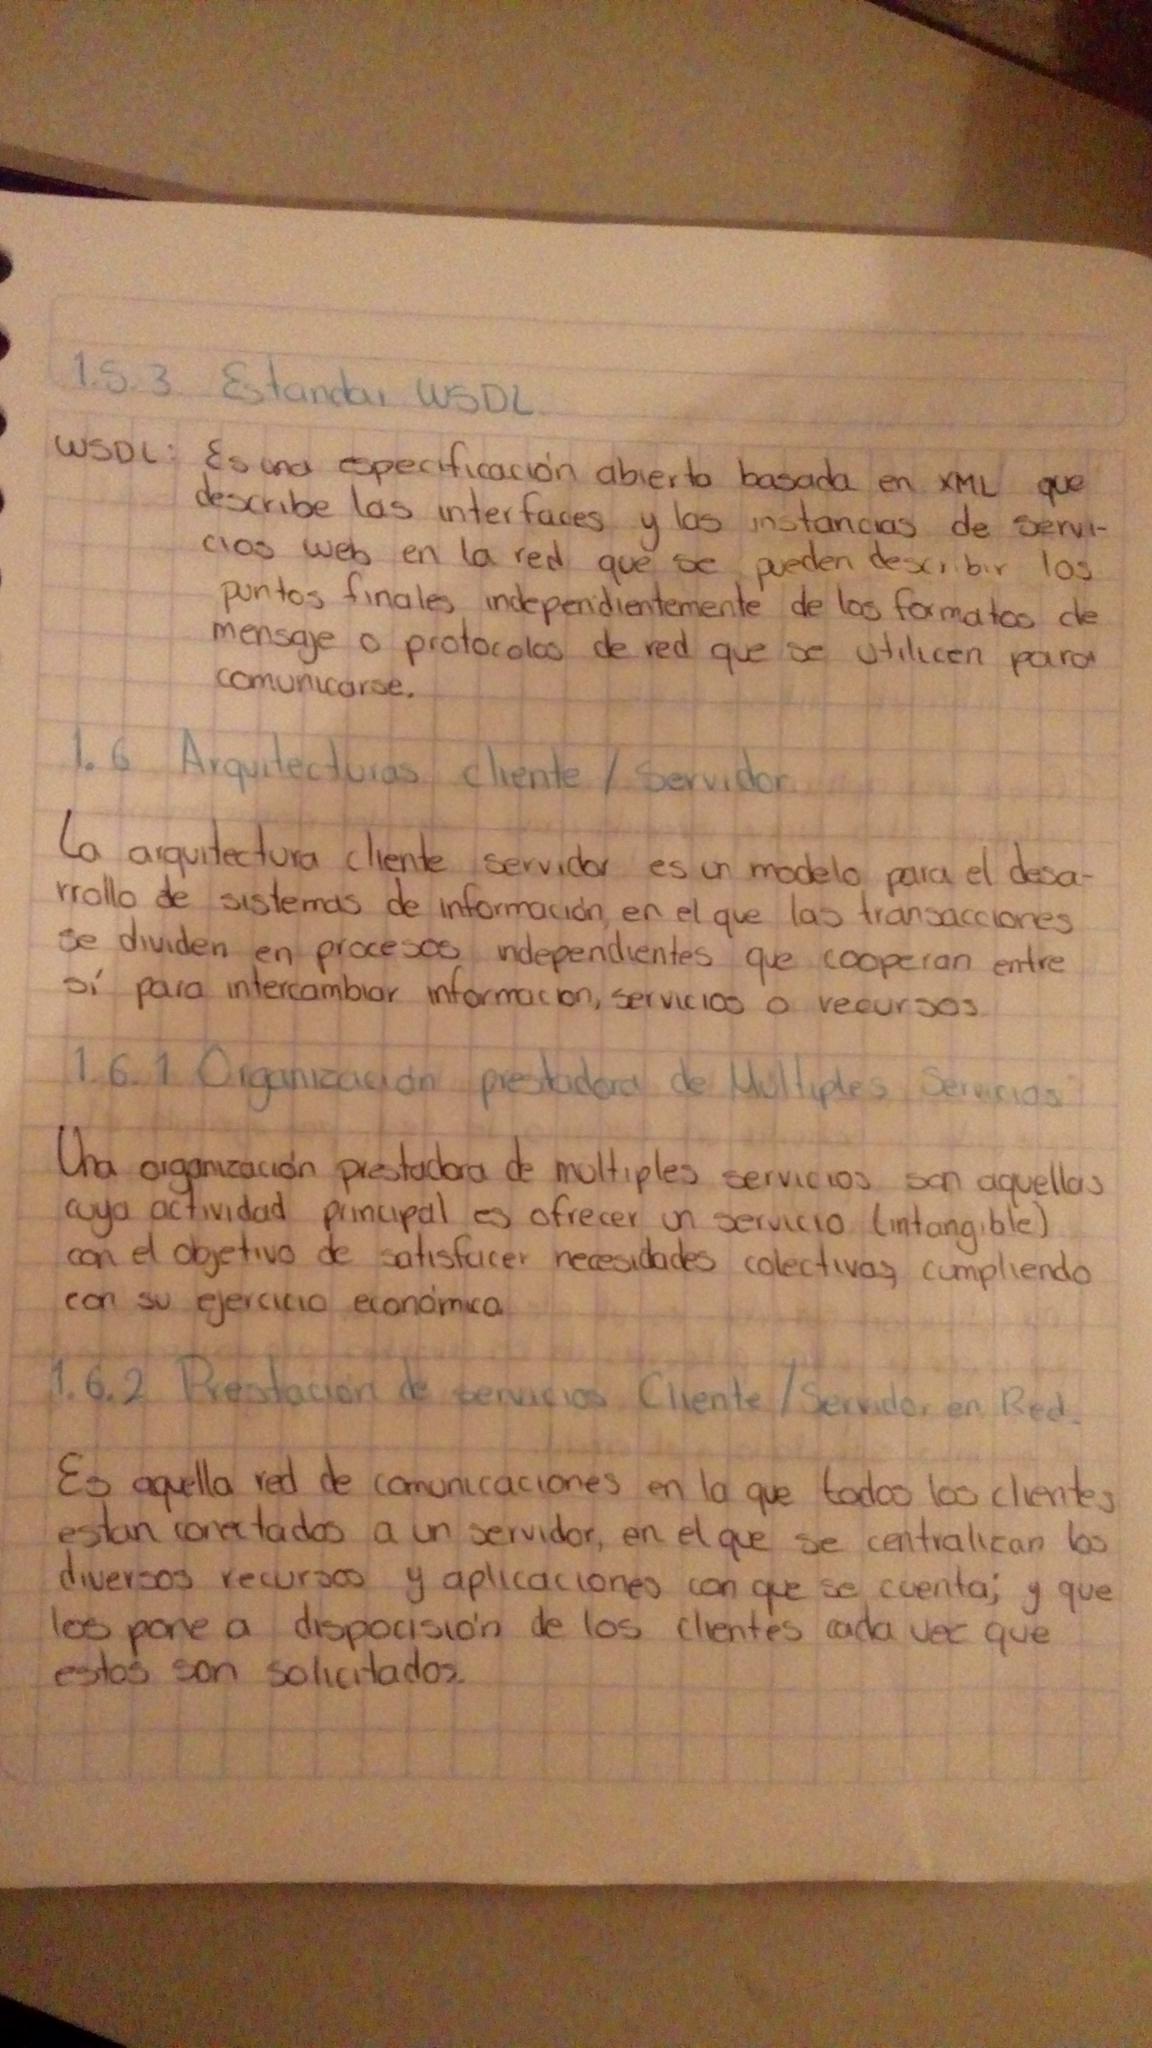 1.5.3 Estandar WSDL
WSDL: Es una especificación abierta basada en XML que
describe las interfaces y las instancias de servi-
cios web en la red que se pueden describir los
puntos finales independientemente de los formatos de
mensaje o protocolos de red que se utilicen para
comunicarse.
1.6 Arquitecturas cliente / Servidor
La arquitectura cliente servidor es un modelo para el desa-
rrollo de sistemas de información, en el que las transacciones
se dividen en procesos independientes que cooperan entre
sí para intercambiar informacion, servicios o recursos
1.6.1 Organización prestadora de Multiples Servicios
Una organización prestadora de multiples servicios son aquellas
cuya actividad principal es ofrecer un servicio (intangible)
con el objetivo de satisfacer necesidades colectivas, cumpliendo
con su ejercicio económica
1.6.2 Prestación de servicios Cliente / Servidor en Red.
Es aquella red de comunicaciones en la que todos los clientes
estan conectados a un servidor, en el que se centralizan los
diversos recursos y aplicaciones con que se cuenta; y que
los pone a dispocisión de los clientes cada vez que
estos son solicitados.